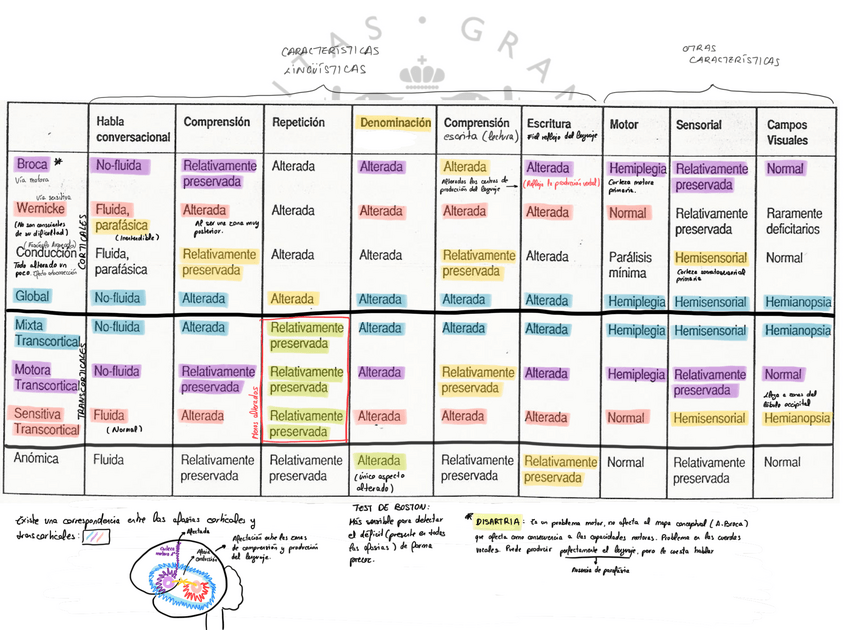 TAS · GRA
CARACTERÍSTICAS
LINGÜÍSTICAS
OTRAS
CARACTERÍSTICAS
Habla conversacional Comprensión Repetición Denominación Comprensión escrita (lectura) Escritura Motor Sensorial Campos Visuales
Fiel reflejo del lenguaje
Broca * No-fluida Relativamente preservada Alterada Alterada Alterada Alterada Hemiplegia Relativamente preservada Normal
Vía motora
Alterados los centros de producción del lenguaje →
(Refleja la producción verbal)
Corteza motora primaria.
Vía sensitiva
Wernicke Fluida, parafásica Alterada Alterada Alterada Alterada Alterada Normal Relativamente preservada Raramente deficitarios
(No son conscientes de su dificultad)
(Inentendible)
Al ser una zona muy posterior.
CORTICALES
(Fascículo Arqueado)
Conducción Fluida, parafásica Relativamente preservada Alterada Alterada Relativamente preservada Alterada Parálisis mínima Hemisensorial Normal
Todo alterado un poco.
Corteza somatosensorial primaria
Global No-fluida Alterada Alterada Alterada Alterada Alterada Hemiplegia Hemisensorial Hemianopsia
Mixta Transcortical No-fluida Alterada Relativamente preservada Alterada Alterada Alterada Hemiplegia Hemisensorial Hemianopsia
TRANSCORTICALES
Motora Transcortical No-fluida Relativamente preservada Relativamente preservada Alterada Relativamente preservada Alterada Hemiplegia Relativamente preservada Normal
Llega a zonas del lóbulo occipital
Sensitiva Transcortical Fluida Alterada Relativamente preservada Alterada Alterada Alterada Normal Hemisensorial Hemianopsia
(Normal)
Menos alterados
Anómica Fluida Relativamente preservada Relativamente preservada Alterada Relativamente preservada Relativamente preservada Normal Relativamente preservada Normal
(único aspecto alterado)
Existe una correspondencia entre las afasias corticales y
transcorticales:
Afectada
Corteza motora 1ª
Afasia conducción
Afectación entre las zonas
de comprensión y producción
del lenguaje.
TEST DE BOSTON:
Más sensible para detectar
el déficit (presente en todas
las afasias) de forma
precoz.
* DISARTRIA: Es un problema motor, no afecta al mapa conceptual (A. Broca)
que afecta como consecuencia a las capacidades motoras. Problema en las cuerdas
vocales. Puede producir perfectamente el lenguaje, pero le cuesta hablar
Ausencia de parafasia